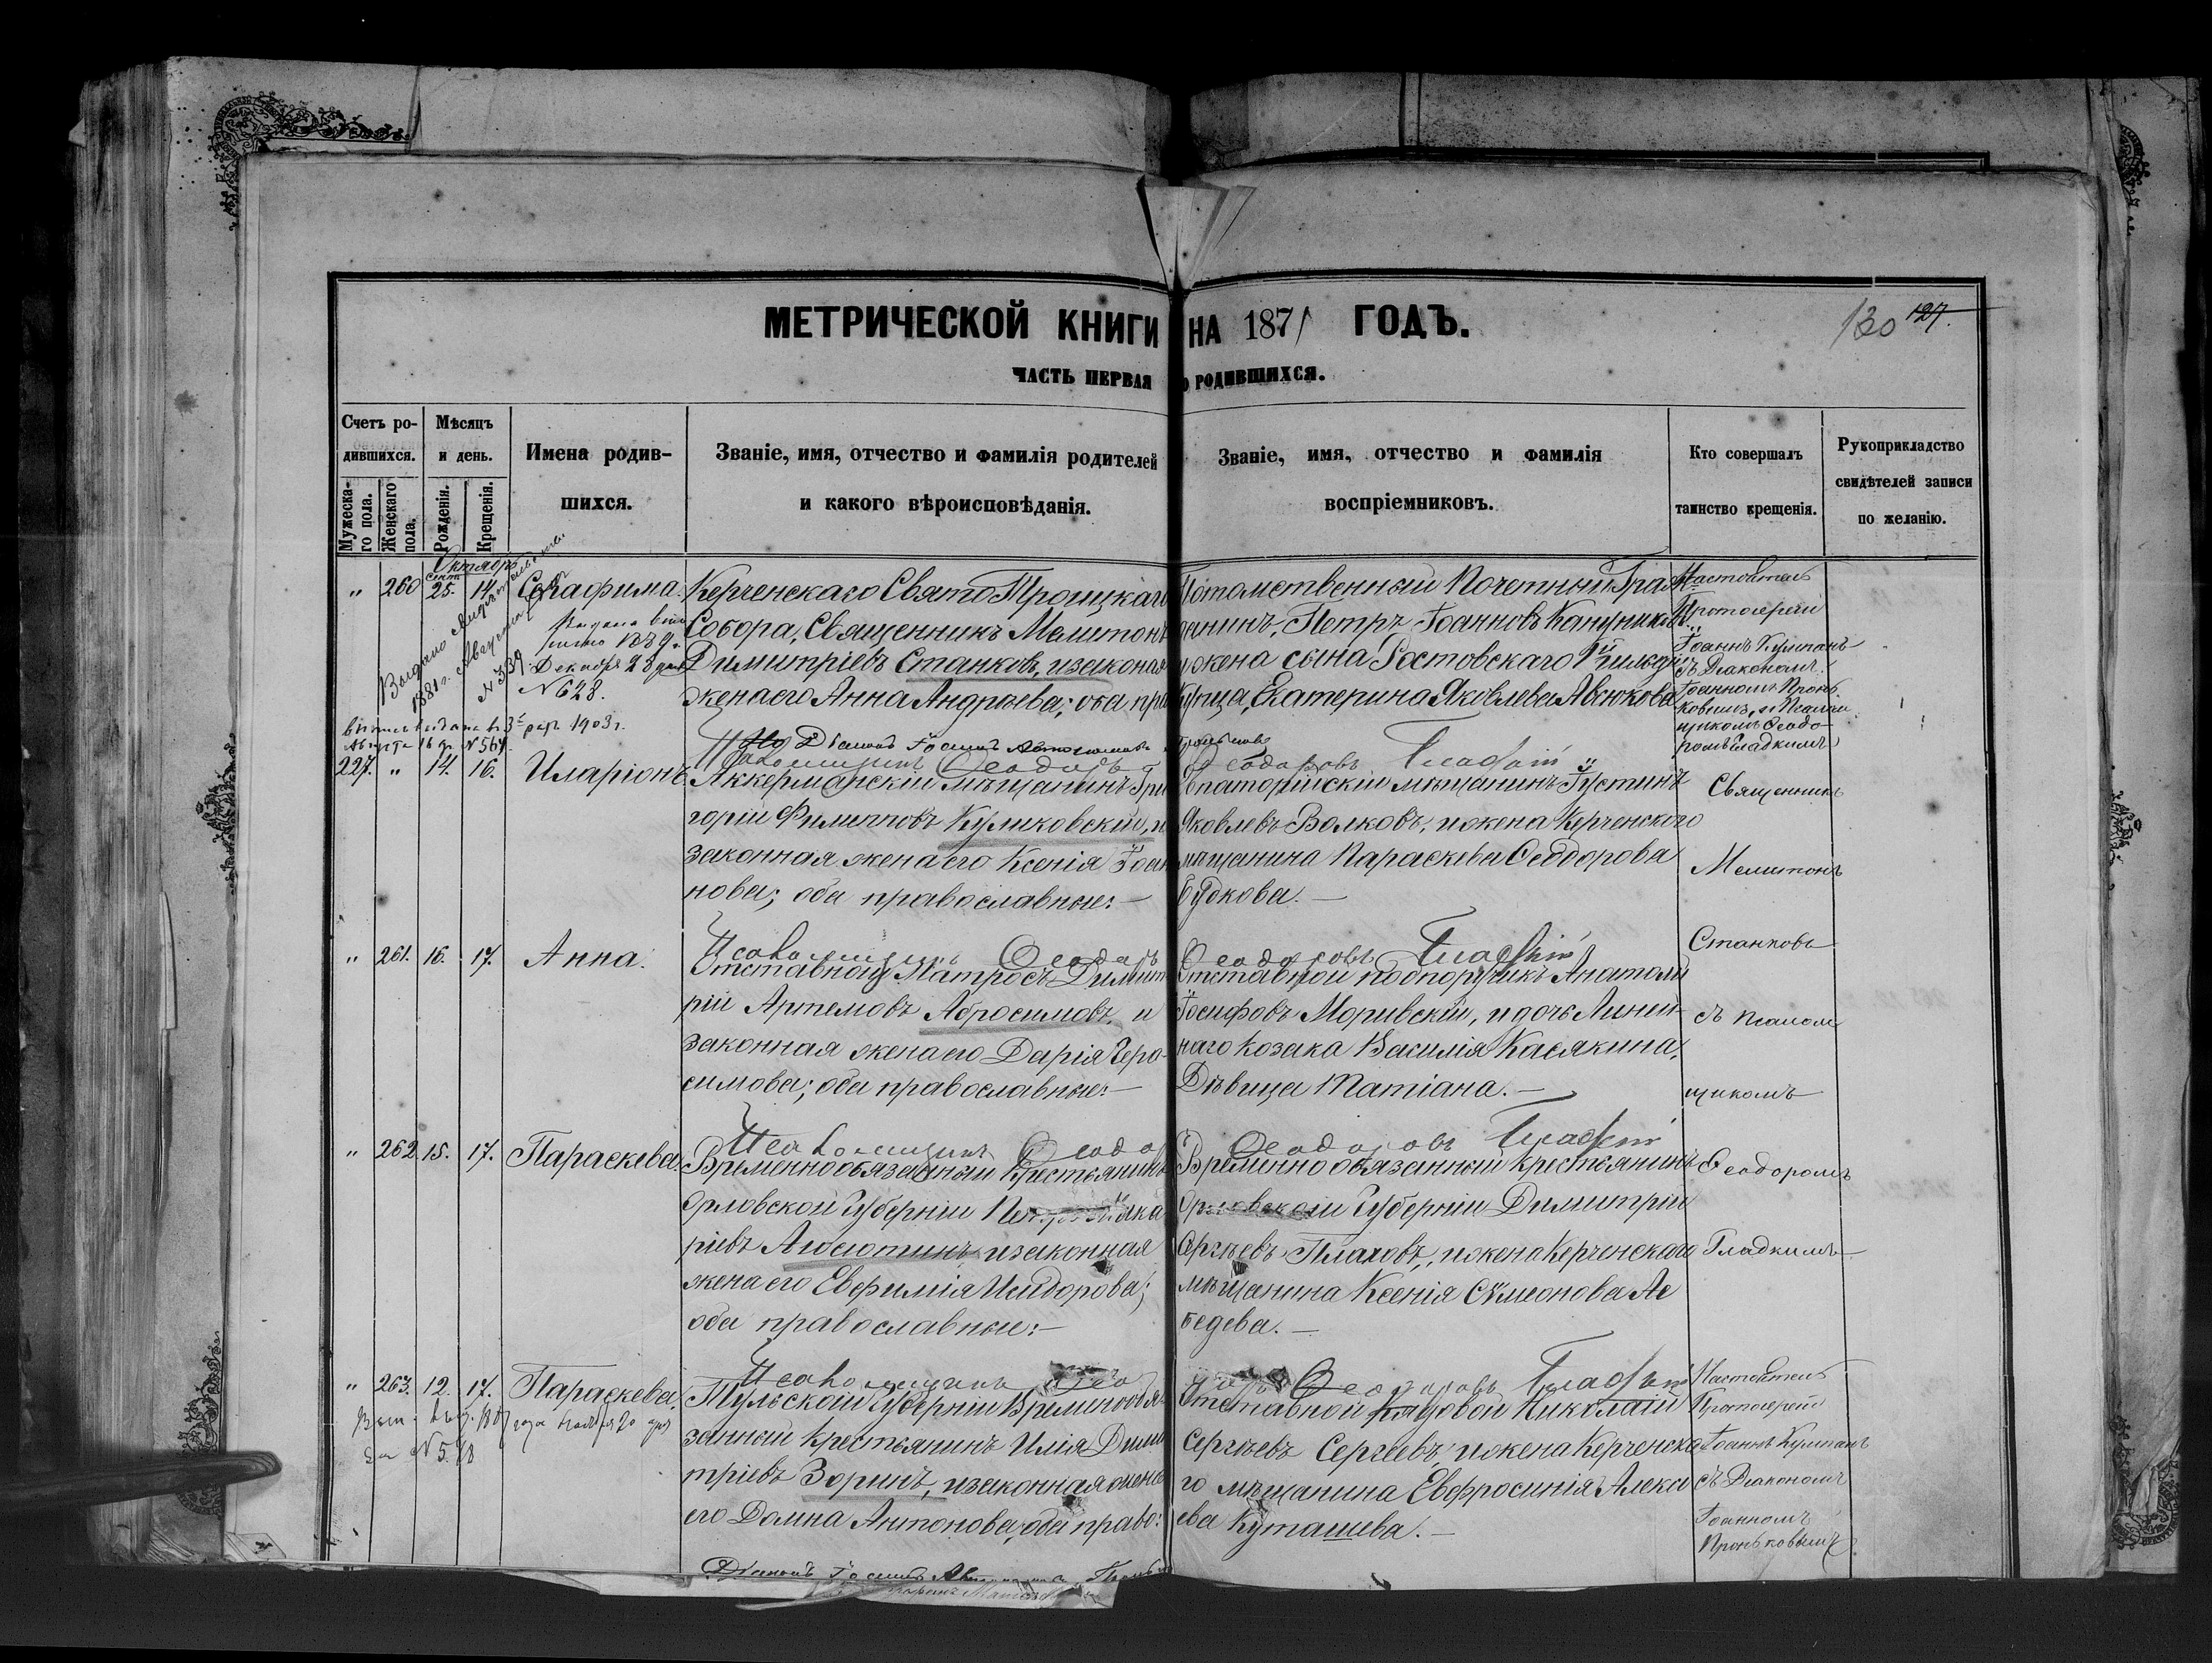 МЕТРИЧЕСКОЙ КНИГИ НА 1871 ГОДЪ.
130 127.
ЧАСТЬ ПЕРВАЯ О РОДИВШИХСЯ.
Счетъ родившихся.
Мужескаго пола.
Женскаго пола.
Мѣсяцъ и день.
Рожденія.
Крещенія.
Имена родившихся.
Званіе, имя, отчество и фамилія родителей
и какого вѣроисповѣданія.
Званіе, имя, отчество и фамилія
воспріемниковъ.
Кто совершалъ
таинство крещенія.
Рукоприкладство
свидѣтелей записи
по желанію.
Октябрь
„ 260 Сент. 25. 14. Серафима.
Выдано
1881 г. Августа
№ 339
Декабря 23 дня
№ 628.
1903 г.
Августа 16 № 564.
Керченскаго Свято Троицкаго
Собора, Священникъ Мелитонъ
Димитріевъ Станковъ, и законная
жена его Анна Андреева; оба пра
Потомственный Почетный Граж
данинъ, Петръ Іоанновъ
и жена сына Ростовскаго 1й гильдіи
Купца, Екатерина Яковлева Авсюкова
Настоятель
Протоіерей
Іоаннъ Кумпанъ
съ Діакономъ
Іоанномъ Пронь
ковымъ, и Псалом
щикомъ Ѳеодо
ромъ Гладкимъ
Діаконъ Іоаннъ Автономовъ Проньковъ
Псаломщикъ Ѳеодоръ Ѳеодоровъ Гладкій
227. „ 14. 16. Иларіонъ.
Аккерманскій мѣщанинъ Гри
горій Филипповъ Куликовскій, и
законная жена его Ксенія Іоан
нова; оба православные.—
Евпаторійскій мѣщанинъ Іустинъ
Яковлевъ Волковъ, и жена Керченскаго
мѣщанина Параскева Ѳеодорова
Будкова.—
Священникъ
Мелитонъ
Станковъ
съ Псалом
щикомъ
Ѳеодоромъ
Гладкимъ
Псаломщикъ Ѳеодоръ Ѳеодоровъ Гладкій
„ 261. 16. 17. Анна.
Отставной Матросъ Димит
рій Артемовъ Абросимовъ, и
законная жена его Дарія Гера
симова; оба православные.—
Отставной подпоручикъ Анатолій
Іосифовъ Моривскій, и дочь Линей
наго Козака Василія Касякина,
Дѣвица Татіана.—
Псаломщикъ Ѳеодоръ Ѳеодоровъ Гладкій
„ 262. 15. 17. Параскева.
Временно обязанный крестьянинъ
Орловской Губерніи Петръ Мака
ріевъ и законная
жена его Евфимія Исидорова;
оба православные.—
Временно обязанный крестьянинъ
Орловской Губерніи Димитрій
Сергѣевъ Плаховъ, и жена Керченскаго
мѣщанина Ксенія Сѵмеонова Ле
бедева.—
Псаломщикъ Ѳеодоръ Ѳеодоровъ Гладкій
„ 263. 12. 17. Параскева.
Тульской Губерніи Временнообя
занный крестьянинъ Илія Дими
тріевъ Зоринъ, и законная жена
его Домна Антонова, оба право:
Отставной рядовой Николай
Сергѣевъ Сергеевъ, и жена Керченска
го мѣщанина Евфросинія Алексѣ
ева Куташева.—
Настоятель
Протоіерей
Іоаннъ Кумпанъ
съ Діакономъ
Іоанномъ
Проньковымъ
Діаконъ Іоаннъ Автономовъ